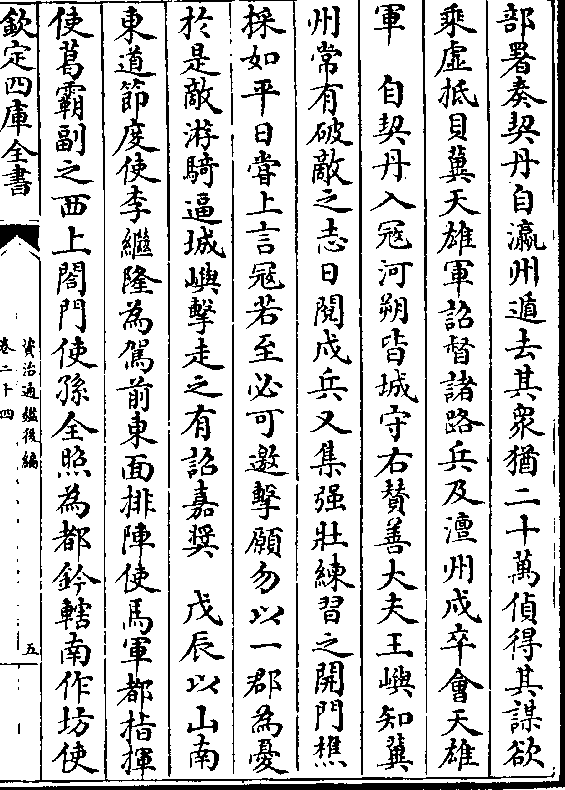 部署奏契丹自瀛州遁去其衆猶二十萬偵得其謀欲
乘虛抵貝冀天雄軍詔督諸路兵及澶州戍卒會天雄
軍　自契丹入冦河朔皆城守右贊善大夫王嶼知冀
州常有破敵之志日閱戍兵又集强壯練習之開門樵
採如平日嘗上言冦若至必可邀擊願勿以一郡為憂
於是敵游騎逼城嶼擊走之有詔嘉奬　戊辰以山南
東道節度使李繼隆為駕前東面排陣使馬軍都指揮
使葛霸副之西上閤門使孫全照為都鈐轄南作坊使
欽定四庫全書
資治通鑑後編
卷二十四
五